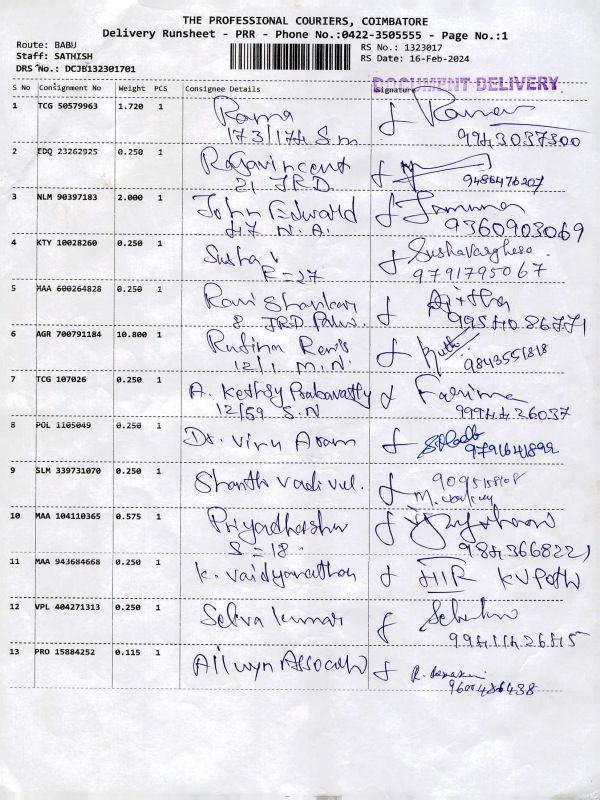 THE PROFESSIONAL COURIERS, COIMBATORE
Delivery Runsheet - PRR - Phone No.:0422-3505555 - Page No.:1
Route: BABU
Staff: SATHISH
DRS No.: DCJB132301701
RS No.: 1323017
RS Date: 16-Feb-2024
DOCUMENT DELIVERY
S No Consignment No Weight PCS Consignee Details Signature
1 TCG 50579963 1.720 1 Rama
173/174 S.m 9943037300
2 EDQ 23262925 0.250 1 Rajavincent
21 J.R.D. 9486476207
3 NLM 90397183 2.000 1 John Edward
47 N.A. 9360903069
4 KTY 10028260 0.250 1 Susha Susha Varghese
R=27 9791795067
5 MAA 600264828 0.250 1 Ravi Shankar
8 JRD
6 AGR 700791184 10.800 1 Rufina
12/1 M.N 9843551818
7 TCG 107026 0.250 1 A. Kethsy Prabavathy Fasima
12/59 S.N 9994426037
8 POL 1105049 0.250 1 Dr. Viru Aram
9791641899
9 SLM 339731070 0.250 1 Shanthi Vadivel.
10 MAA 104110365 0.575 1 Priyadharshu
S=18
11 MAA 943684668 0.250 1 K. Vaidyanathan
12 VPL 404271313 0.250 1 Selva Kumar
9941142645
13 PRO 15884252 0.115 1 Ailwyn
9600486438